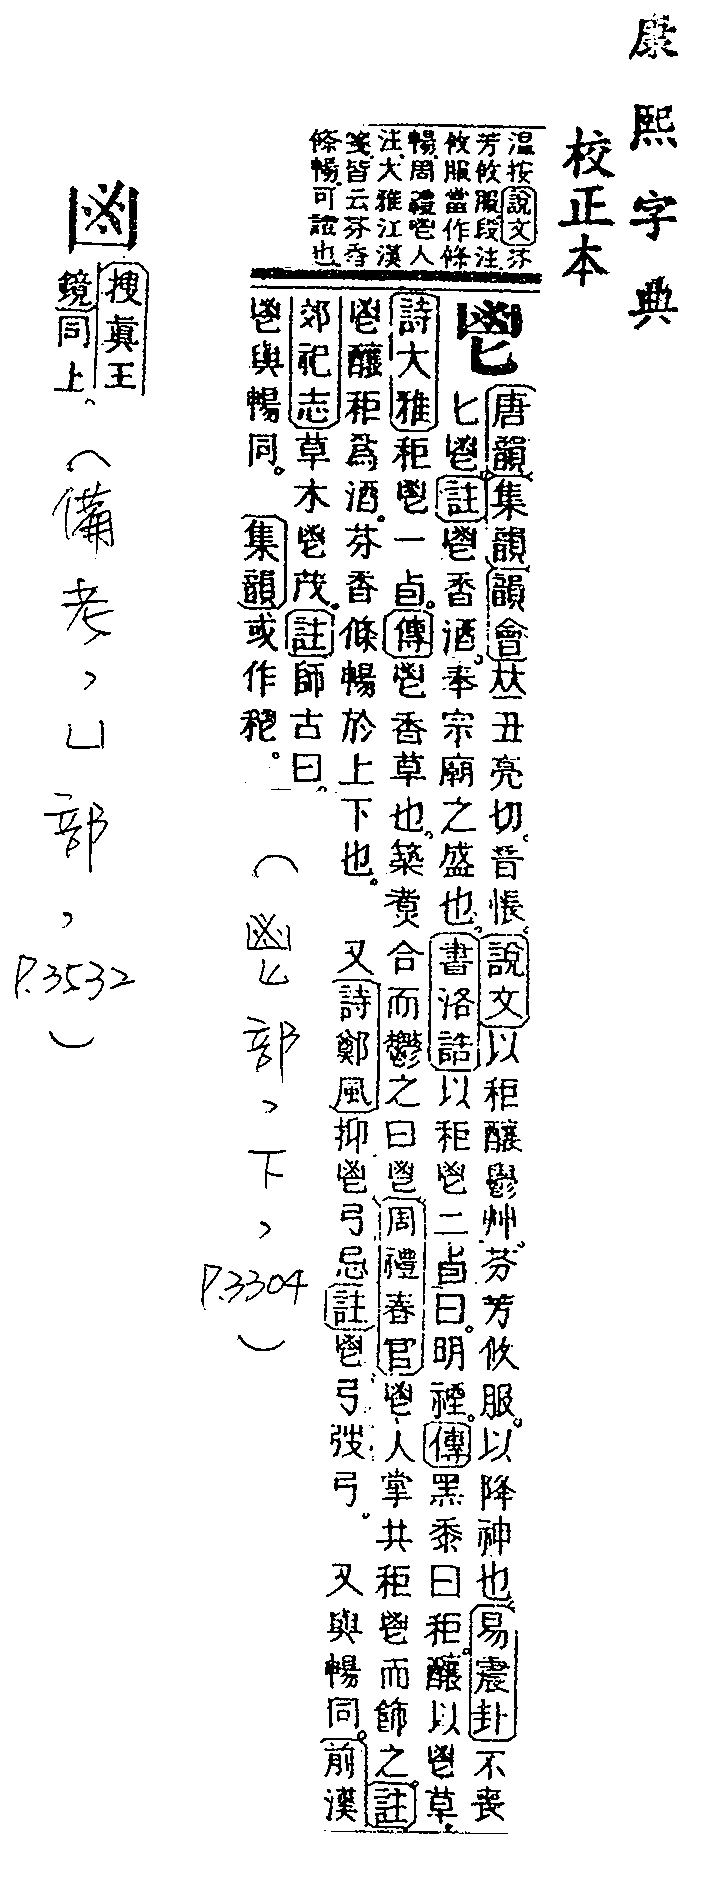 康熙字典
校正本
温按說文芬
芳攸服段注
攸服當作條
暢周禮鬯人
注大雅江漢
箋皆云芬香
條暢可證也
鬯
唐韻集韻韻會𠀤丑亮切。音悵。說文以秬釀鬱艸。芬芳攸服。以降神也。易震卦不喪
匕鬯。註鬯香酒。奉宗廟之盛也。書洛誥以秬鬯二卣曰。明禋。傳黑黍曰秬。釀以鬯草。
詩大雅秬鬯一卣。傳鬯香草也。築煑合而鬱之曰鬯。周禮春官鬯人掌共秬鬯而飾之。註
鬯釀秬爲酒。芬香條暢於上下也。 又詩鄭風抑鬯弓忌註鬯弓弢弓。 又與暢同。前漢
郊祀志草木鬯茂。註師古曰。
鬯與暢同。 集韻或作𩰪。
(鬯部,下,P.3304)
搜眞玉
鏡同上。
(備考,凵部,P.3532)